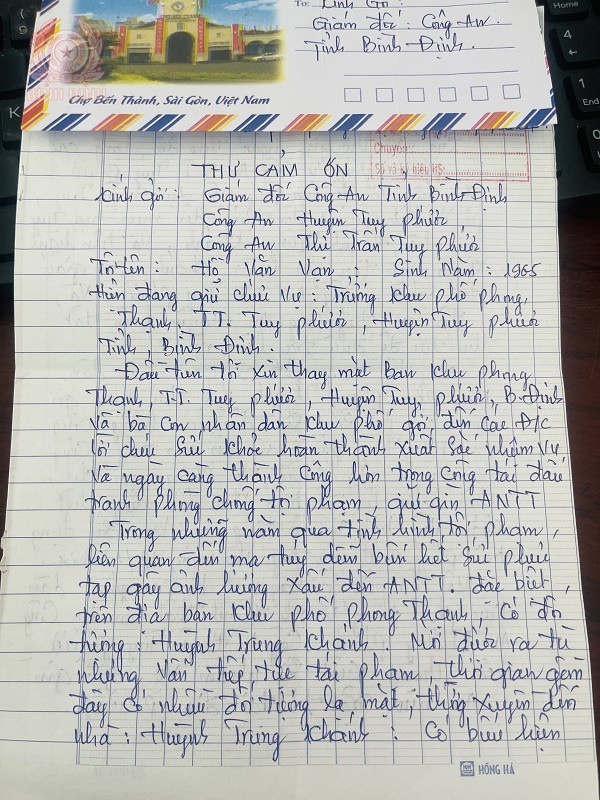 Home
4
1
End
K
To: Kính Gởi:
Giám đốc: Công An.
Tỉnh Bình Định.
Chợ Bến Thành, Sài Gòn, Việt Nam
Chuyển:
Số và ký hiệu HS:
THƯ CẢM ƠN
Kính gởi: Giám đốc Công An Tỉnh Bình Định
Công An Huyện Tuy Phước
Công An Thị Trấn Tuy Phước
Tôi tên: Hồ Văn Vạn; Sinh Năm: 1965
Hiện đang giữ chức vụ: Trưởng khu phố phong
Thạnh, TT. Tuy phước, Huyện Tuy phước
Tỉnh, Bình Định.
Đầu tiên tôi xin thay mặt ban khu phong
Thạnh, TT. Tuy phước, Huyện Tuy, phước, B. Định
và bà con nhân dân khu phố gởi đến các Đ/C
lời chúc sức khỏe hoàn thành xuất sắc nhiệm vụ
và ngày càng thành công hơn trong công tác đấu
tranh phòng chống tội phạm, giữ gìn ANTT
Trong những năm qua tình hình tội phạm,
liên quan đến ma túy diễn biến hết sức phức
tạp gây ảnh hưởng xấu đến ANTT. đặc biệt,
trên địa bàn khu phố phong Thạnh, có đối
tượng: Huỳnh Trung Khánh. Mới được ra tù
nhưng vẫn tiếp tục tái phạm, thời gian gần
đây có nhiều đối tượng lạ mặt, thường xuyên đến
nhà: Huỳnh Trung Khánh: Có biểu hiện
HỒNG HÀ